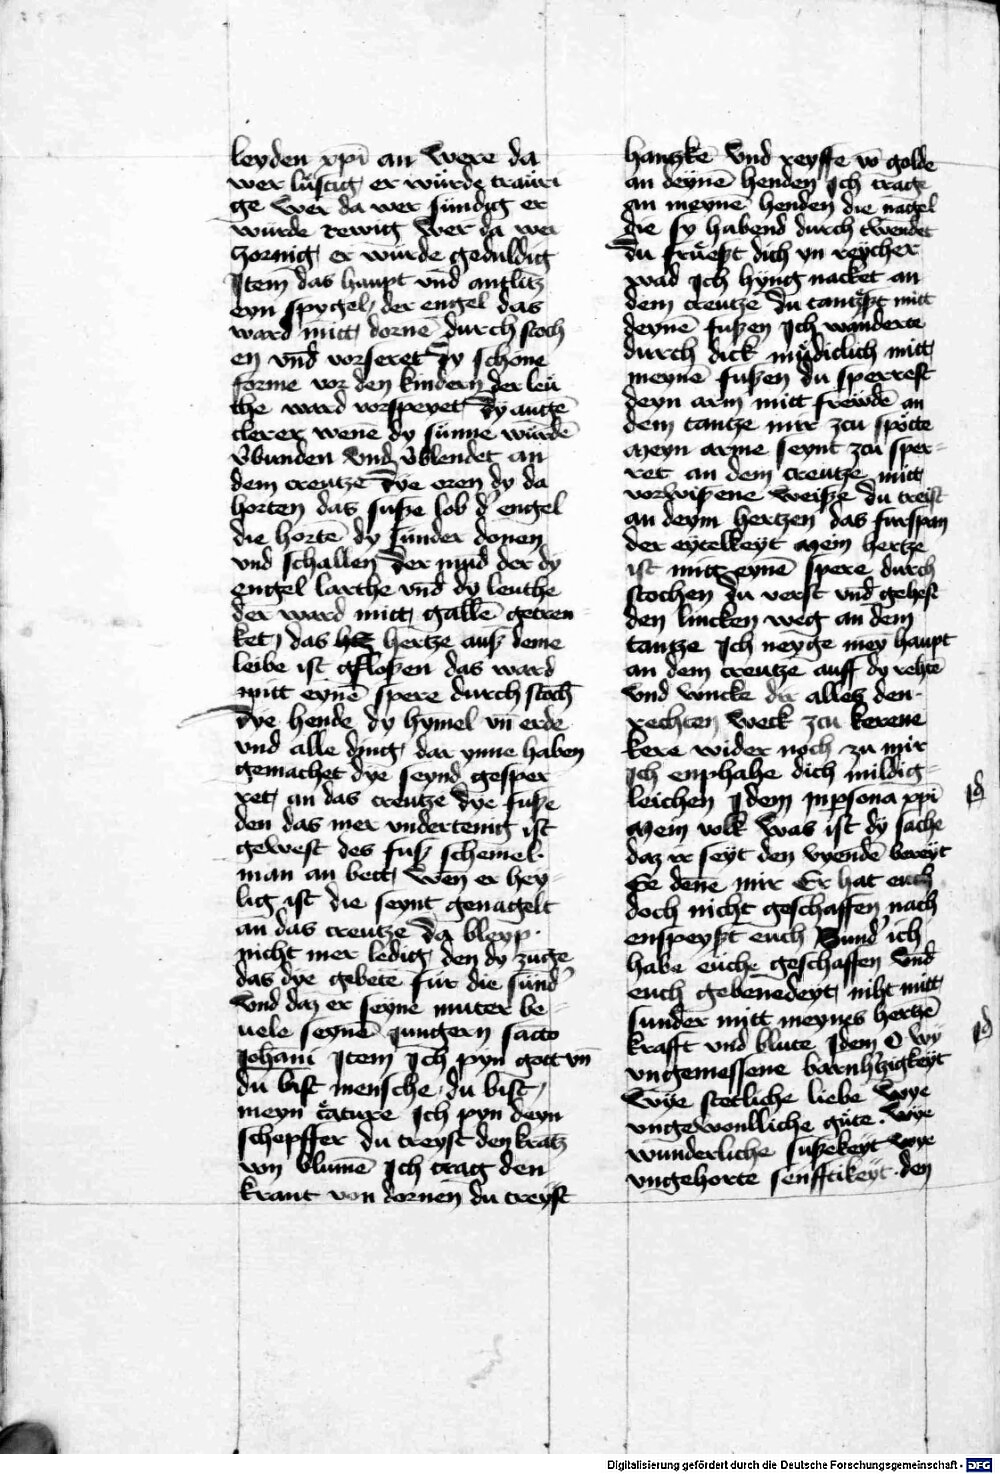 leyden xpi an Were da
wer lustig er würde trauri
ge Wer da wer sündig er
würde rewig Wer da wer
zornig er würde geduldig
Item das haupt vnd antlitz
eyn spygel der engel das
ward mitt dornē durch stoch
en vnd vorseret Dy schone
forme vor den kindern der leü
the ward vorspeyet Dy augē
clerer wenē dy sunne würdē
v̄bunden Vnd v̄blendet an
dem creutze Dye eren dy da
horten das susze lob d' engel
die hortē dy sunder donen
vnd schallen Der mūd der dy
engel larthe vnd dy leuthe
der ward mitt gallē getren
ket das hertze ausz deme
leibe ist gflossen das ward
mitt eynē spere durch stoch
Dye hende dy hymel vn̄ erde
vnd alle ding dar ynne haben
gemachet dye seynd gesper
ret an das creutze Dye fusze
den das mer vndertenig ist
gewest des fusz schemel
man an bett wen er hey
lig ist die seynt genagelt
an das creutze Da bleyp
nicht mer ledig den dy zuge
das dye gebete für die sünd'
Vnd daz er seyne muter be
uele seynē jungern sācto
Johāni Item Ich pyn gott vn̄
du bist mensche du bist
meyn c̄ature Ich pyn deyn
schepffer du treyst den kratz
von blumē Ich trag den
krantz von dornen du treyst
hantzkē Vnd reyffe vō golde
an deynē henden Ich trage
an meynē henden die nagel
die sy habend durch wendet
Du frueszt dich yn reycher
wad Ich hyng nacket an
dem creutze Du tantzszt mitt
deynē fuszen Ich wanderte
durch dick mudiclich mitt
meynē fuszen du sperrest
deyn arm mitt frewdē an
dem tantze mir zcu spotte
Meyn arme seynt zcu sper
ret an dem creutze mitt
vorwiszene weisze Du treist
an deym hertzen das furspan
der eytelkeyt Mein hertze
ist mitt eynē spere durch
stochen Du verst vnd gehest
den lincken weg an dem
tantze Ich neyge mey haupt
an dem creutze auff dy rehtē
vnd wincke dir alles den
rechten weck zcu kerene
kere wider noch zu mir
Ich enphahe dich mildig
leichen Idem In psona xpi
Mein volk Was ist dy sache
daz ir seyt den vyendē bereyt
denē mir Er hat euch
doch nicht geschaffen nach
enspeyszt euch Sund' ich
habe euche geschaffen Vnd
euch gebenedeyt niht mitt
sunder mitt meynes hertzē
krafft vnd blute Idem O wy
vngemessene barmh'tzigkeyt
Wye stetliche liebe Wye
vngewonlliche güte Wye
wunderliche suszekeyt Wye
vngehorte senfftikeyt den
Digitalisierung gefördert durch die Deutsche Forschungsgemeinschaft - DFG